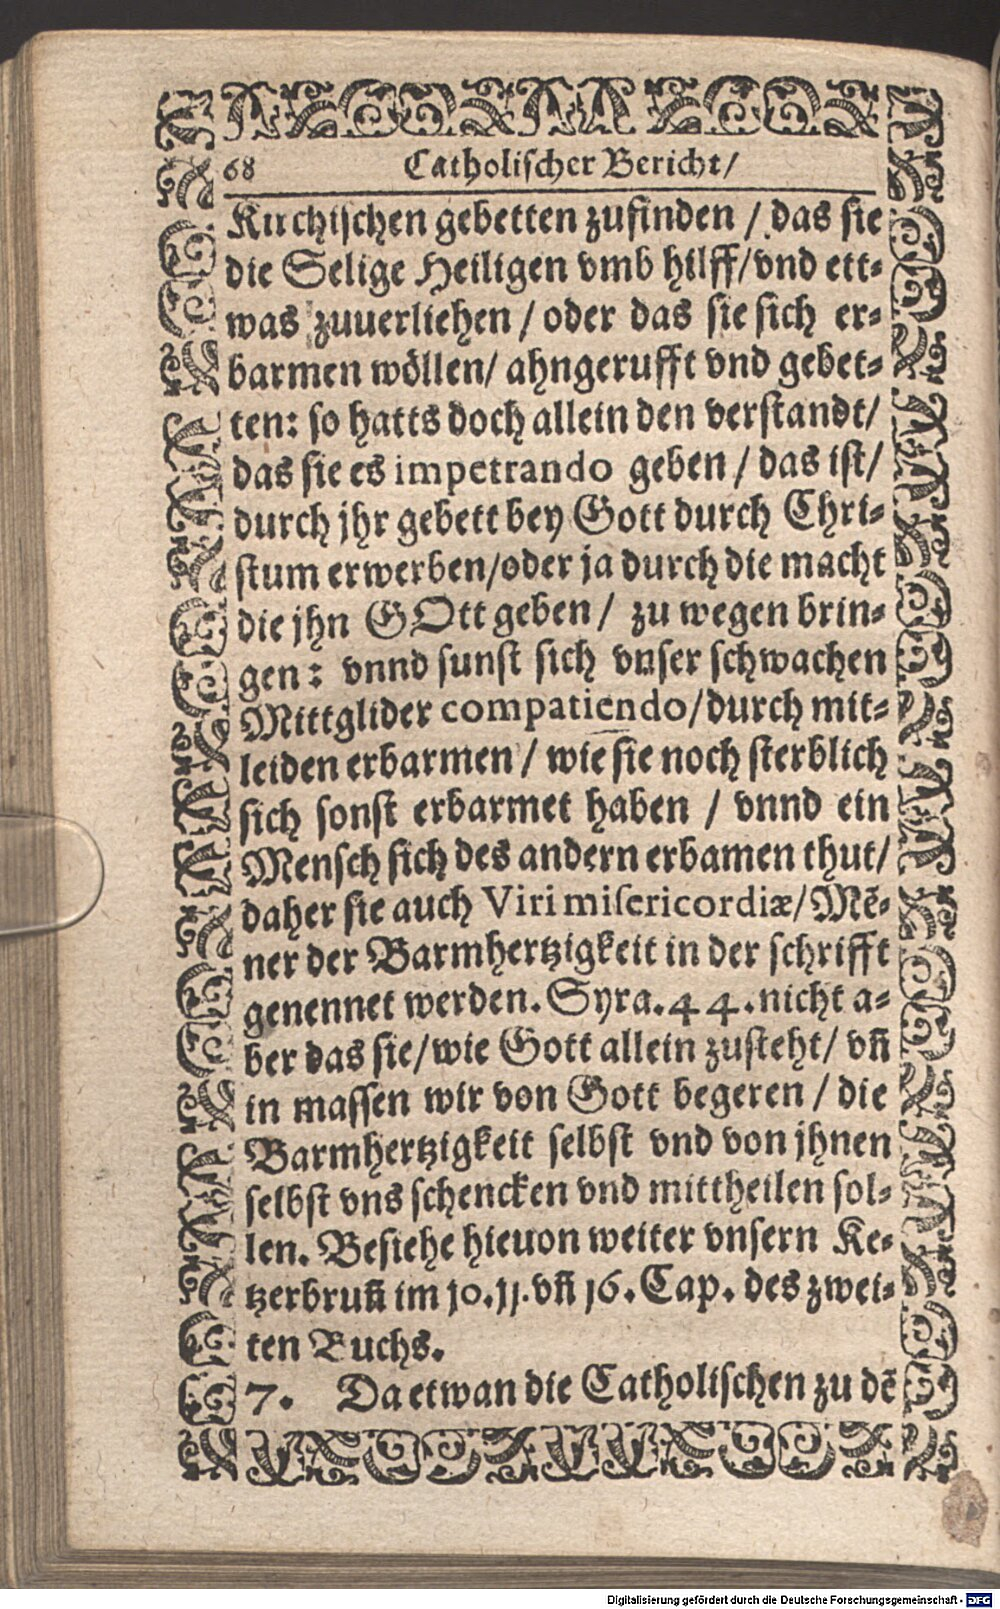 68 Catholischer Bericht/
Kirchischen gebetten zufinden / das sie
die Selige Heiligen vmb hilff/vnd ett⸗
was zuuerliehen / oder das sie sich er⸗
barmen wöllen/ ahngerufft vnd gebet⸗
ten: so hatts doch allein den verstandt/
das sie es impetrando geben / das ist/
durch jhr gebett bey Gott durch Chri⸗
stum erwerben/oder ja durch die macht
die jhn GOtt geben / zu wegen brin⸗
gen: vnnd sunst sich vnser schwachen
Mittglider compatiendo/durch mit⸗
leiden erbarmen / wie sie noch sterblich
sich sonst erbarmet haben / vnnd ein
Mensch sich des andern erbamen thut/
daher sie auch Viri misericordiæ/Mẽ⸗
ner der Barmhertzigkeit in der schrifft
genennet werden. Syra. 44. nicht a⸗
ber das sie/wie Gott allein zusteht/ vñ
in massen wir von Gott begeren / die
Barmhertzigkeit selbst vnd von jhnen
selbst vns schencken vnd mittheilen sol⸗
len. Besiehe hieuon weiter vnsern Ke⸗
tzerbruñ im 10. 11. vñ 16. Cap. des zwei⸗
ten Buchs.
7. Da etwan die Catholischen zu dẽ
Digitalisierung gefördert durch die Deutsche Forschungsgemeinschaft - DFG